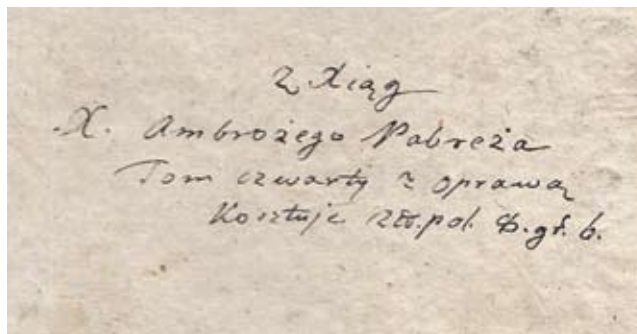 Z Xiąg
X. Ambrożego Pabreża
Tom czwarty z oprawą
Kosztuje złł.pol. 8.gł. 6.